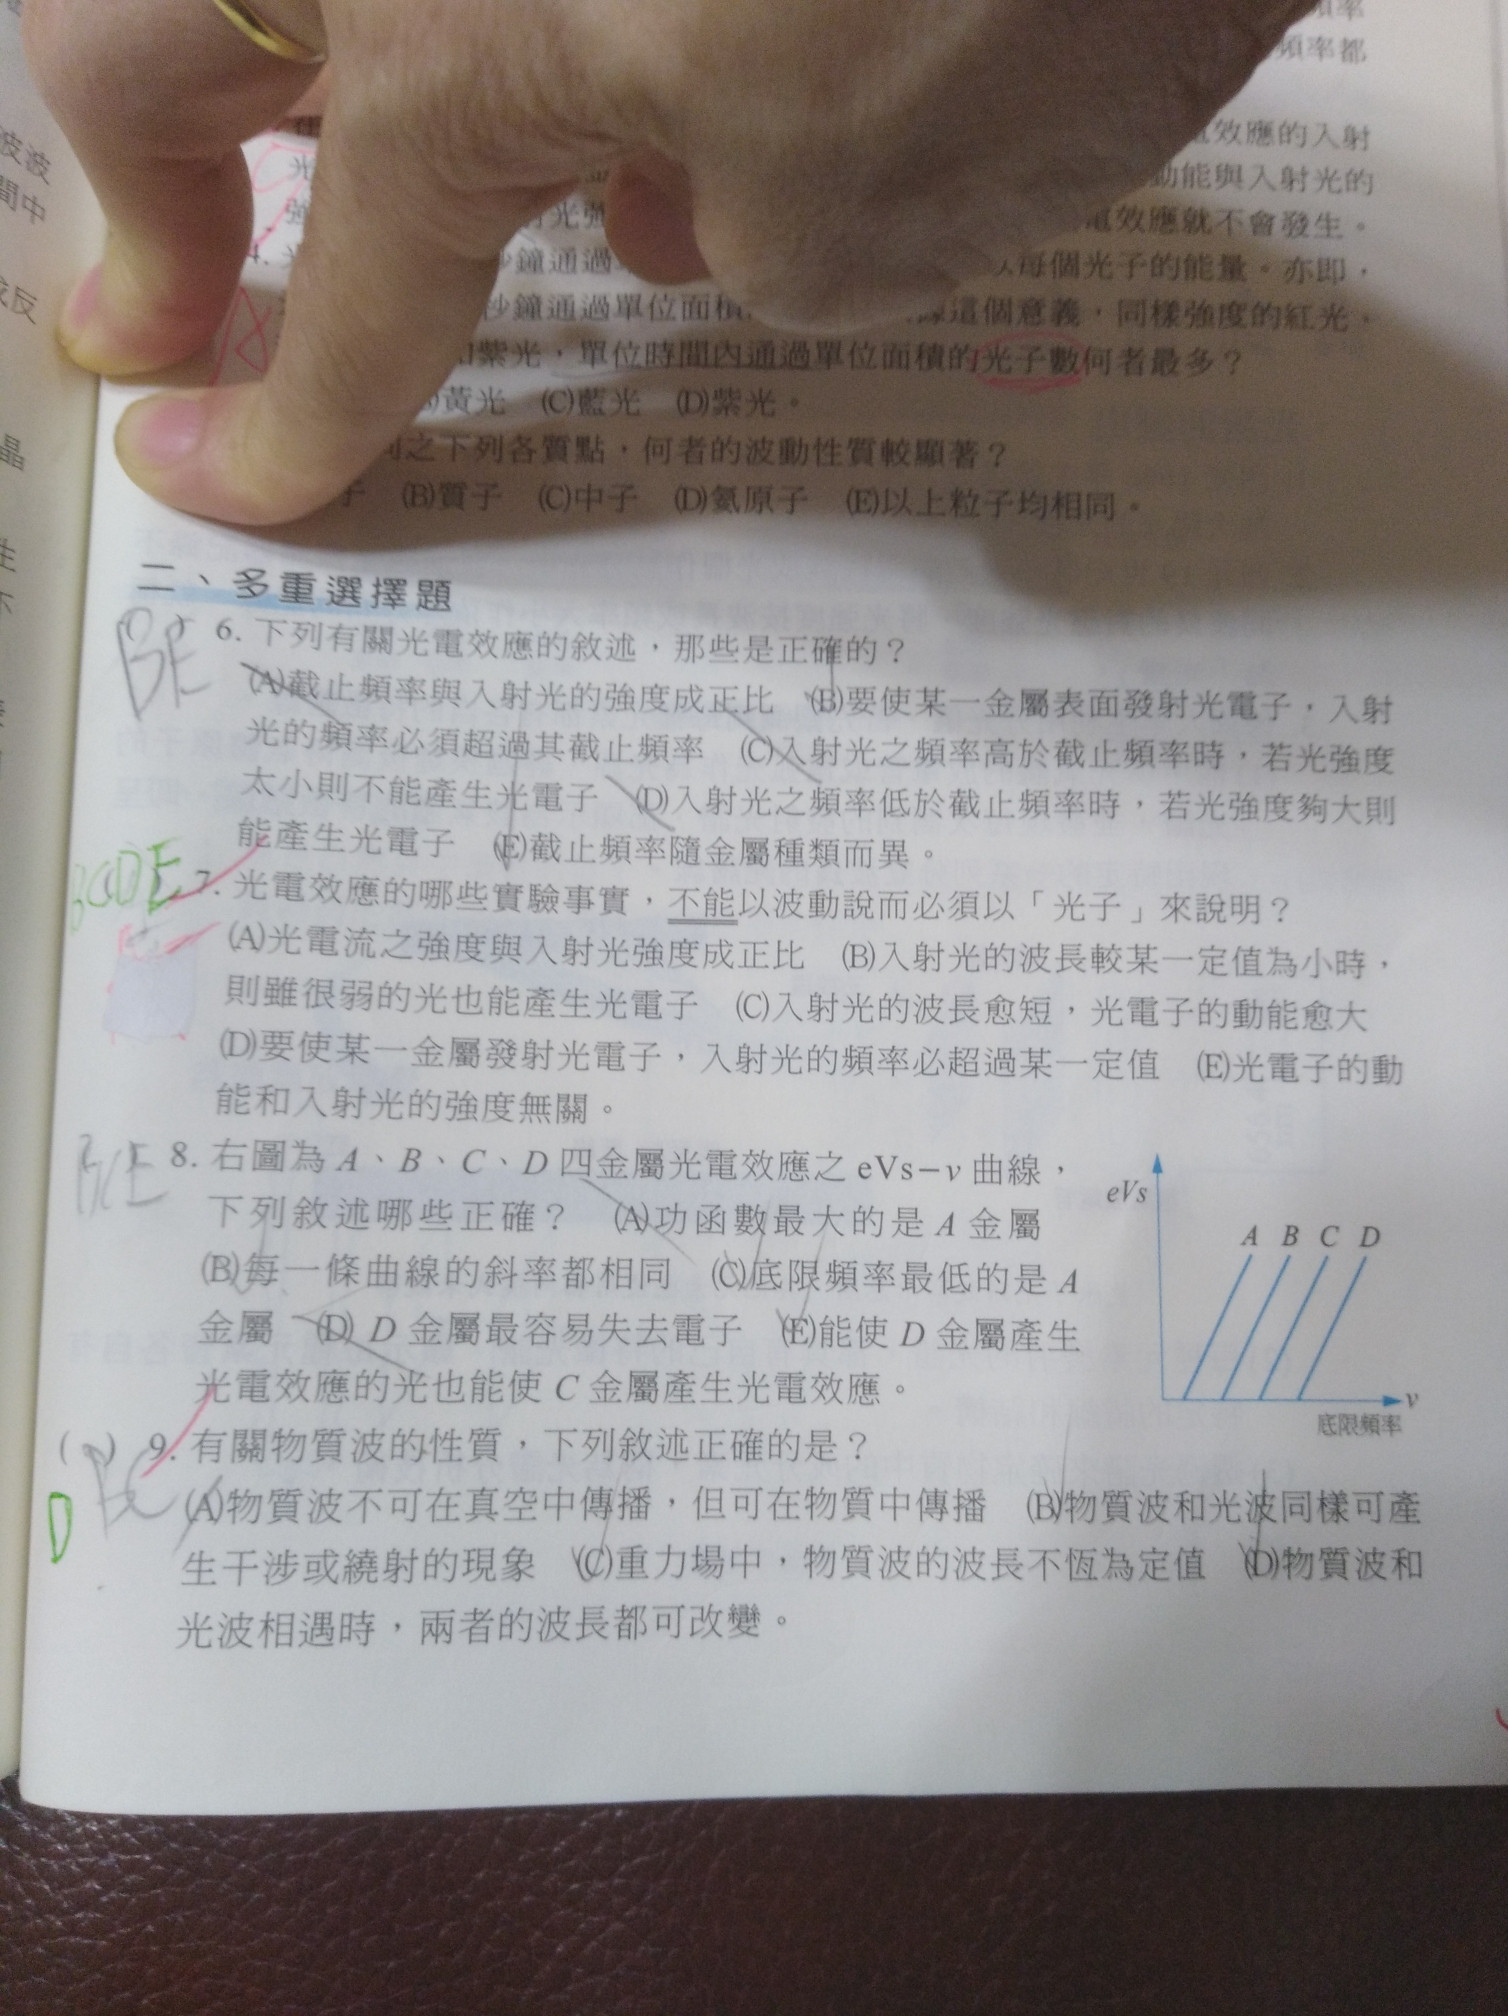 頻率
頻率都
電效應的入射
動能與入射光的
電效應就不會發生。
4.
秒鐘通過
每個光子的能量。亦即,
秒鐘通過單位面積
這個意義,同樣強度的紅光、
紫光,單位時間內通過單位面積的光子數何者最多?
黃光 (C)藍光 (D)紫光。
之下列各質點,何者的波動性質較顯著?
子 (B)質子 (C)中子 (D)氦原子 (E)以上粒子均相同。
二、多重選擇題
BE
6. 下列有關光電效應的敘述,那些是正確的?
(A)截止頻率與入射光的強度成正比 (B)要使某一金屬表面發射光電子,入射
光的頻率必須超過其截止頻率 (C)入射光之頻率高於截止頻率時,若光強度
太小則不能產生光電子 (D)入射光之頻率低於截止頻率時,若光強度夠大則
能產生光電子 (E)截止頻率隨金屬種類而異。
BCDE
7. 光電效應的哪些實驗事實,不能以波動說而必須以「光子」來說明?
(A)光電流之強度與入射光強度成正比 (B)入射光的波長較某一定值為小時,
則雖很弱的光也能產生光電子 (C)入射光的波長愈短,光電子的動能愈大
(D)要使某一金屬發射光電子,入射光的頻率必超過某一定值 (E)光電子的動
能和入射光的強度無關。
BCE
8. 右圖為 A、B、C、D 四金屬光電效應之 eVs−ν 曲線,
下列敘述哪些正確? (A)功函數最大的是 A 金屬
(B)每一條曲線的斜率都相同 (C)底限頻率最低的是 A
金屬 (D) D 金屬最容易失去電子 (E)能使 D 金屬產生
光電效應的光也能使 C 金屬產生光電效應。
eVs
A B C D
ν
底限頻率
( ) 9. 有關物質波的性質,下列敘述正確的是?
BC
D
(A)物質波不可在真空中傳播,但可在物質中傳播 (B)物質波和光波同樣可產
生干涉或繞射的現象 (C)重力場中,物質波的波長不恆為定值 (D)物質波和
光波相遇時,兩者的波長都可改變。